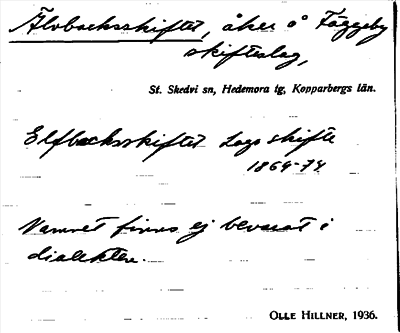 Älvbacksskiftet, åker å Fäggeby
skifteslag,
St. Skedvi sn, Hedemora tg, Kopparbergs län.
Elfbacksskiftet Laga skifte
1869-74
Namnet finns ej bevarat i
dialekten.
OLLE HILLNER, 1936.